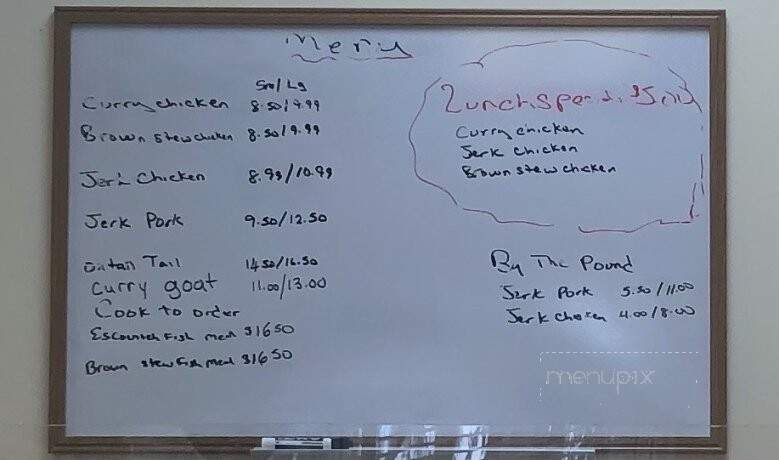 Menu
Sm/Lg
Curry chicken 8.50/9.99
Brown stew chicken 8.50/9.99
Jerk Chicken 8.99/10.99
Jerk Pork 9.50/12.50
Tail 14.50/16.50
Curry goat 11.00/13.00
Cook to order
Fish meal $16 50
Brown stew Fish meal $16 50
Lunch
Curry chicken
Jerk chicken
Brown stew chicken
By The Pound
Jerk Pork 5.50/11.00
Jerk chicken 4.00/8.00
menupix